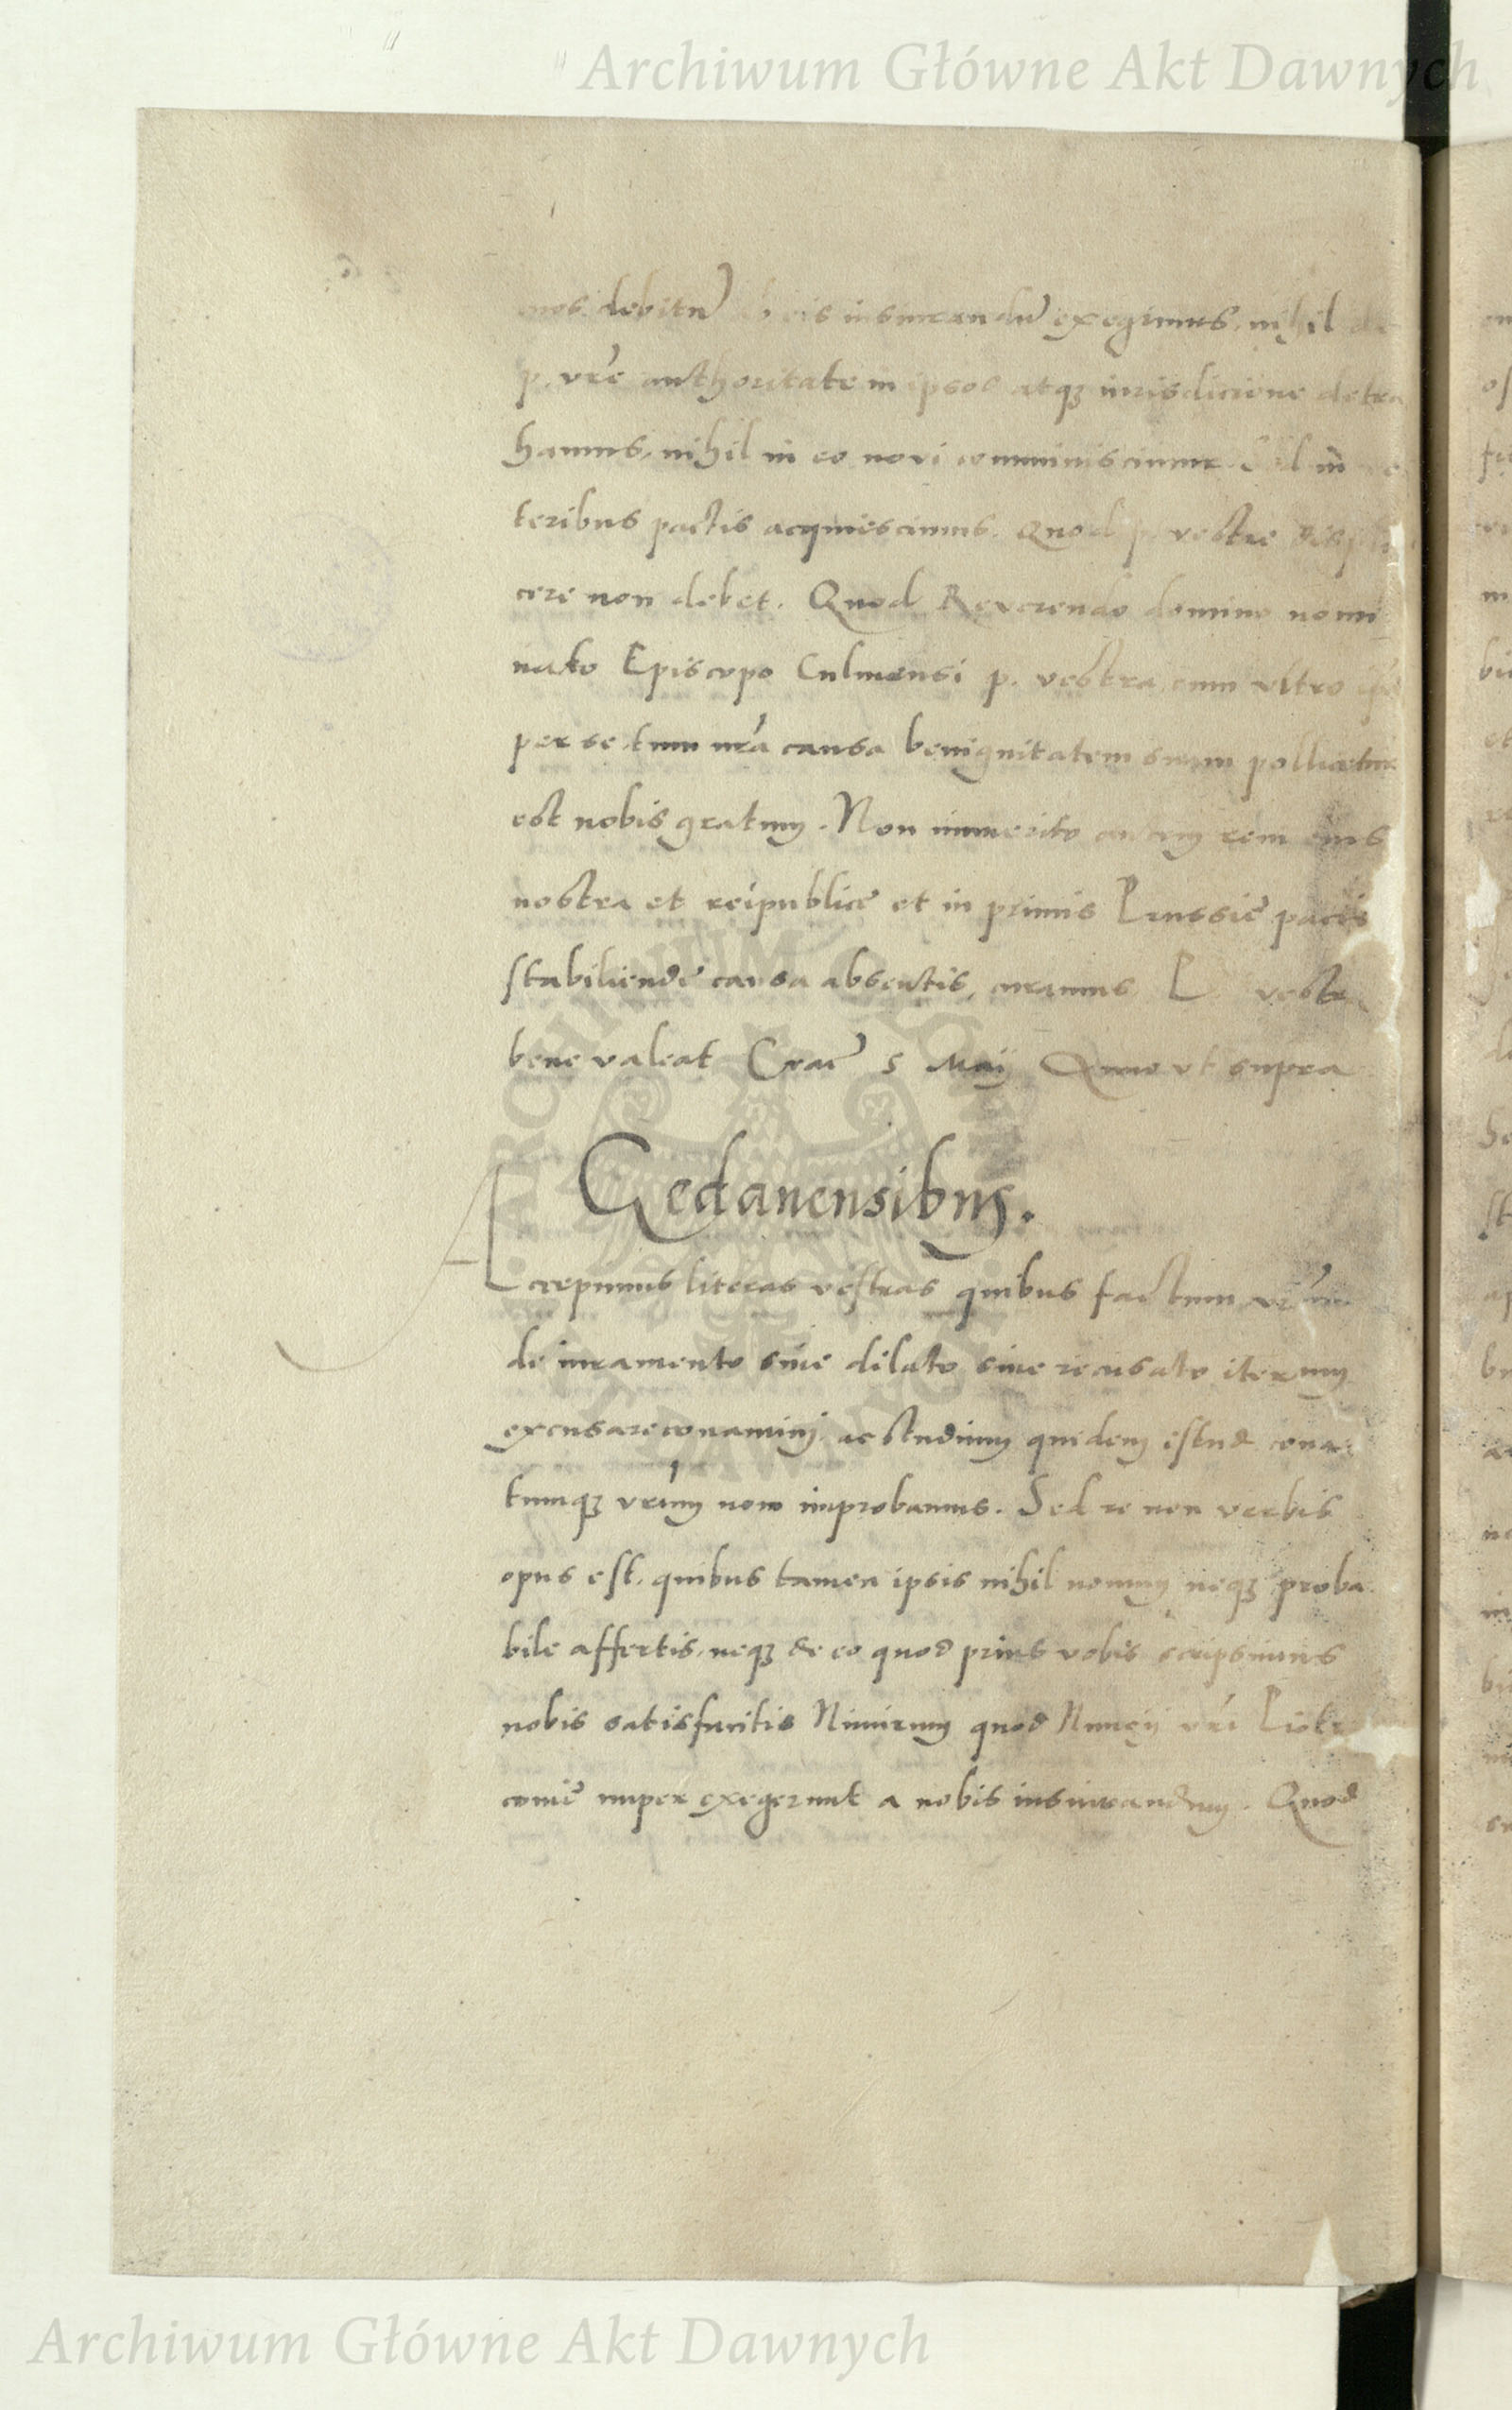 Archiwum Główne Akt Dawnych
nos debitũ ab eis iusiurandũ exegimus, nihil de
p. vrẽ authoritate in ipsos atqȝ iurisdicione detra
hamus, nihil in eo novi comminiscimur. Sed in ve
teribus pactis acquiescimus. Quod p. vestre displi
cere non debet. Quod Reverendo domino nomi
nato Episcopo Culmensi p. vestra cum ultro
per se tum nrã causa benignitatem suam pollicetur
est nobis gratum. Non immerito autem rem eius
nostra et reipublicę et in primis Prussię pacis
stabiliendę causa absentis, curamus P vestra
bene valeat Crac̃ 5 Maij Anno vt supra
Gedanensibus.
Accepimus literas vestras quibus factum vrũm
de iuramento siue dilato siue recusato iterum
excusare conamini, ac studium quidem istud cona
tumqȝ vrũm non improbamus. Sed re non verbis
opus est, quibus tamen ipsis nihil nouum neqȝ proba
bile affertis, neqȝ de eo quod prius vobis scripsimus
nobis satisfacitis Nimirum quod Nuncij vrĩ Piotr
couię nuper exegerunt a nobis iusiurandum. Quod
Archiwum Główne Akt Dawnych